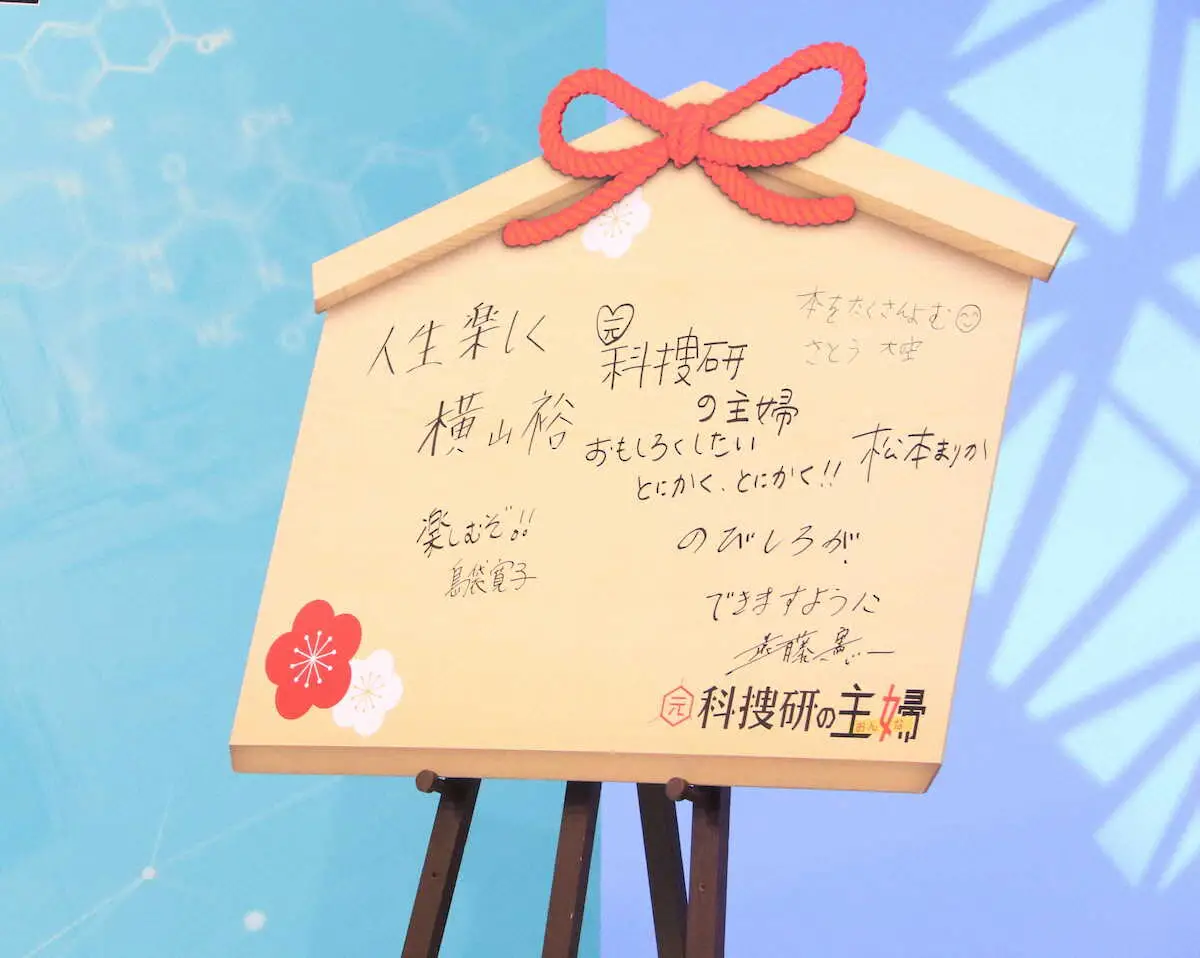 人生楽しく
横山裕
元
科捜研
の主婦
おもしろくしたい
とにかく、とにかく!!
松本まりか
本をたくさんよむ
さとう 大空
楽しむぞ!!
島袋寛子
のびしろが
できますように
遠藤憲一
元 科捜研の主婦
おんな